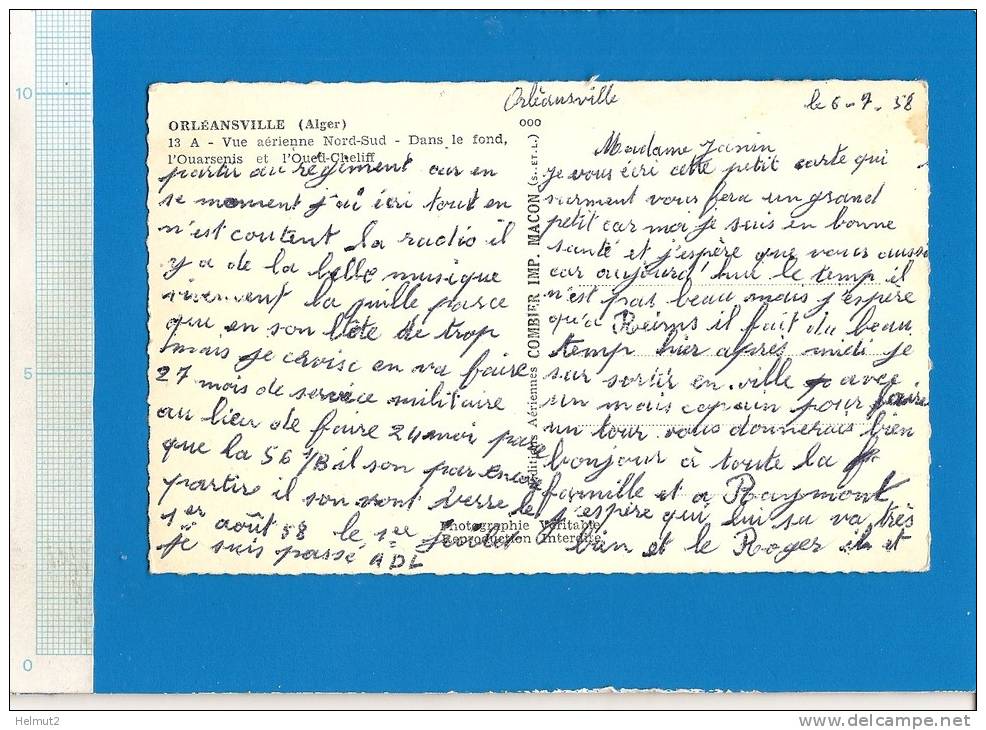 10
5
0
ORLÉANSVILLE (Alger)
13 A - Vue aérienne Nord-Sud - Dans le fond,
l'Ouarsenis et l'Oued-Cheliff
Orléansville
le 6-7-58
000
Editions Aériennes COMBIER IMP. MACON (S. ET L.)
Madame Janin
je vous écri cette petit carte qui
surment vous fera un grand
petit car moi je suis en bonne
santé et j'espère que vous aussi
car aujourd'hue le temp il
n'est pas beau mais j'espère
qu'a Reims il fait du beau
temp hier après midi je
sur sortir en ville avec
un mais copain pour faire
un tour vous donnerais bien
bonjour à toute la
famille et a Raymont
j'espère qui lui sa va très
bien et le Roger il et
partir au régiment car en
se moment j'ai écri tout en
n'est coutent la radio il
y a de la belle musique
vivement la quille parce
que en son bête de trop
mais je croise en va faire
27 mois de service militaire
au lieu de faire 24 moi parce
que la 56 1/B il son par encore
partire il son vont verre le
1er août 58 le 1re
je suis passé ADL
Photographie Véritable
Reproduction Interdite
Helmut2
www.delcampe.net